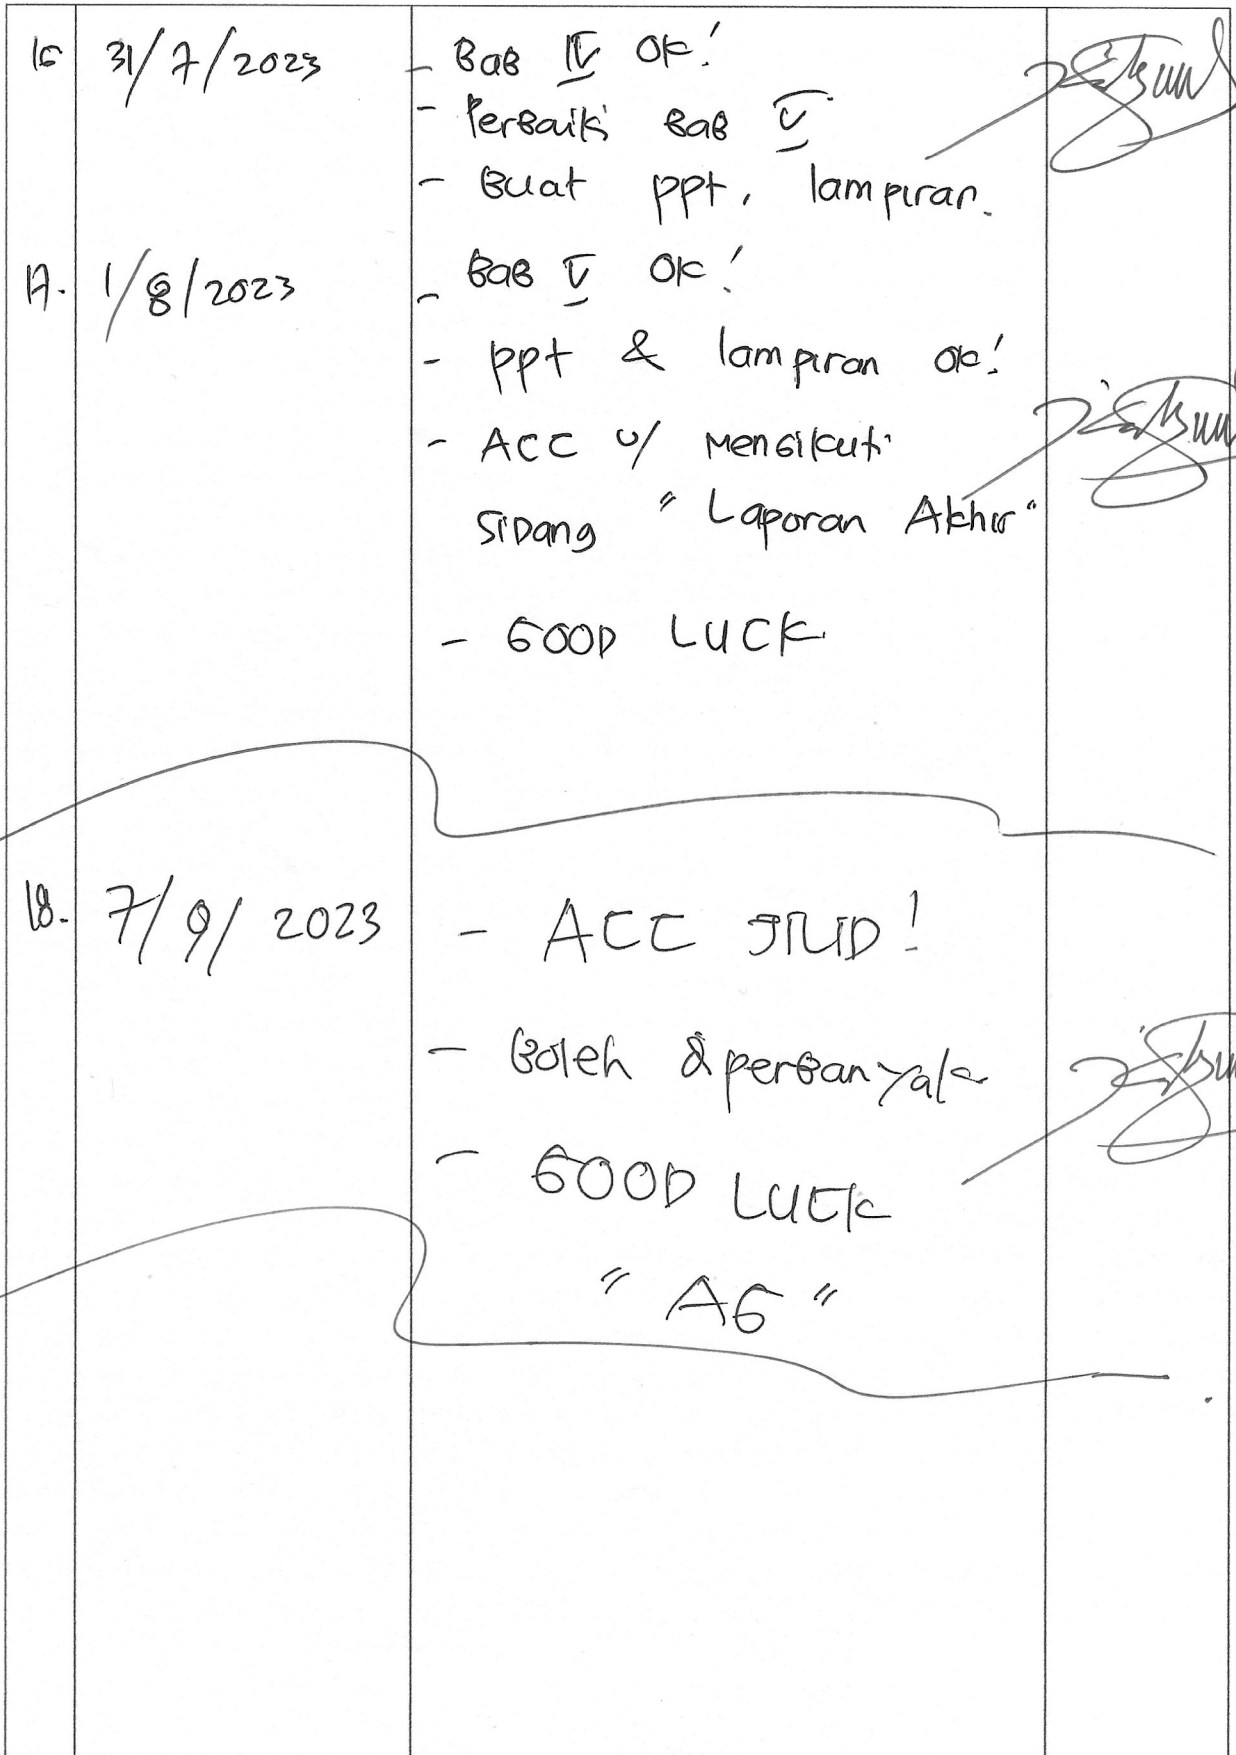 16 31/7/2023 - Bab IV OK!
- Perbaiki Bab V
- Buat ppt, lampiran.
17. 1/8/2023 - Bab V OK!
- ppt & lampiran ok!
- ACC u/ mengikuti
sidang "Laporan Akhir"
- GOOD LUCK
18. 7/9/2023 - ACC JILID!
- Boleh diperbanyak
- GOOD LUCK
"AG"